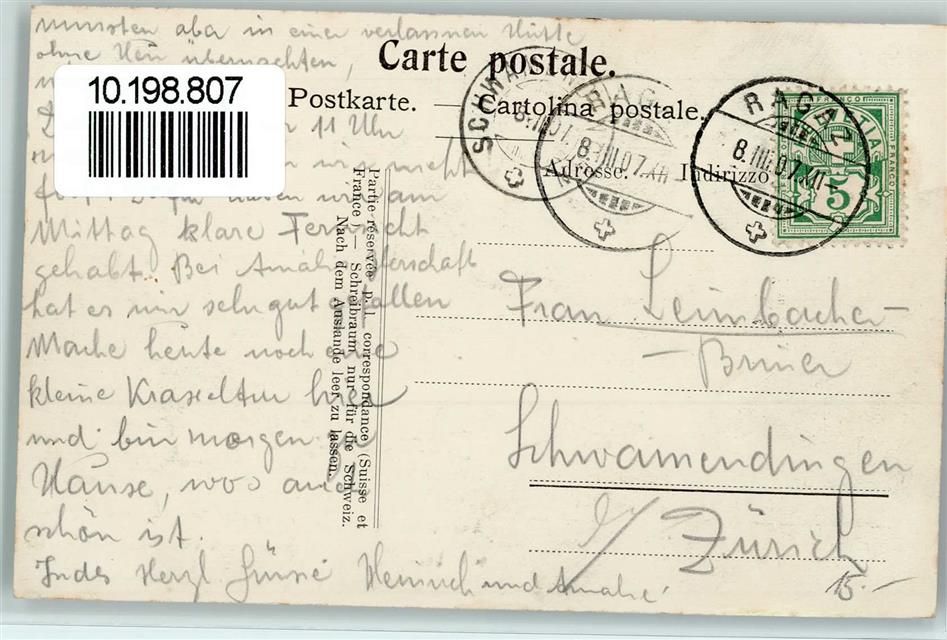 mussten aber in einer verlassenen Hütte
ohne Heu übernachten,
11 Uhr
wir nicht
am
Mittag klare Fernsicht
gehabt. Bei
hat es mir sehr gut gefallen
Mache heute noch eine
kleine Kraxeltur hier
und bin morgen zu
Hause, wo's auch
schön ist.
Indes Herzl Grüsse Heinrich und Amalie
10.198.807
Carte postale.
Postkarte. — Cartolina postale.
Adresse. Indirizzo
Partie réservée p. l. correspondance (Suisse et
France) — Schreibraum nur für die Schweiz.
Nach dem Auslande leer zu lassen.
SCHWAM
8.III.07.
RAGAZ
8.III.07.XII
RAGAZ
8.III.07.XII
FRANCO
HELVETIA
5
Frau Leimbacher-
-Briner
Schwamendingen
b/ Zürich
15.-